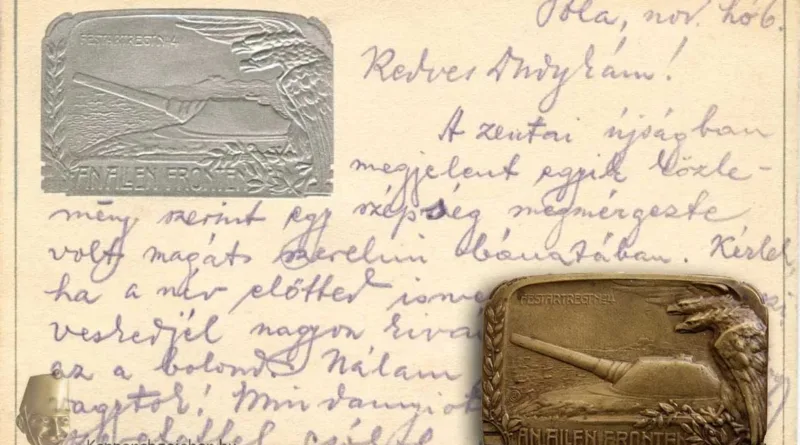 FESTARTREG№4
AN ALLEN FRONTEN
Pola, nov. hó 6.
Kedves Dudykám!
A zentai újságban
megjelent egyik közle-
mény szerint egy szépség megmérgezte
volt magát szerelmi bánatában. Kérlek
ha a név előtted
veskedjél nagyon
ez a bolond. Nálam
vagytok! Mindannyiot
FESTARTREG№4
AN ALLEN FRONTEN